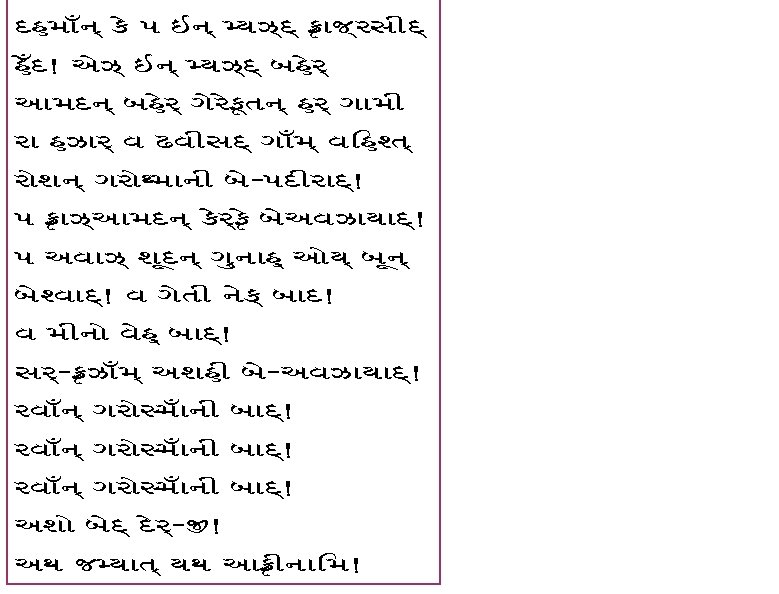 દહમાઁન્ કે પ ઈન્ મ્યઝ્દ્ ફ્રાજ્રસીદ્
હેઁદ! એઝ્ ઈન્ મ્યઝ્દ્ બહેર્
આમદન્ બહેર્ ગેરેફ્તન્ હર્ ગામી
રા હઝાર્ વ દ્વીસદ્ ગાઁમ્ વહિશ્ત્
રોશન્ ગરોથ્માની બે-પદીરાદ્!
પ ફ્રાઝ્આમદન્ કેર્ફે બેઅવઝાયાદ્!
પ અવાઝ્ શૂદન્ ગુનાહ્ ઓય્ બૂન્
બેશ્વાદ્! વ ગેતી નેક્ બાદ!
વ મીનો વેહ્ બાદ્!
સર્-ફ્રઝાઁમ્ અશહી બે-અવઝાયાદ્!
રવાઁન્ ગરોસ્માઁની બાદ્!
રવાઁન્ ગરોસ્માઁની બાદ્!
રવાઁન્ ગરોસ્માઁની બાદ્!
અશો બેદ્ દેર્-જી!
અથ જમ્યાત્ યથ આફ્રીનામિ!